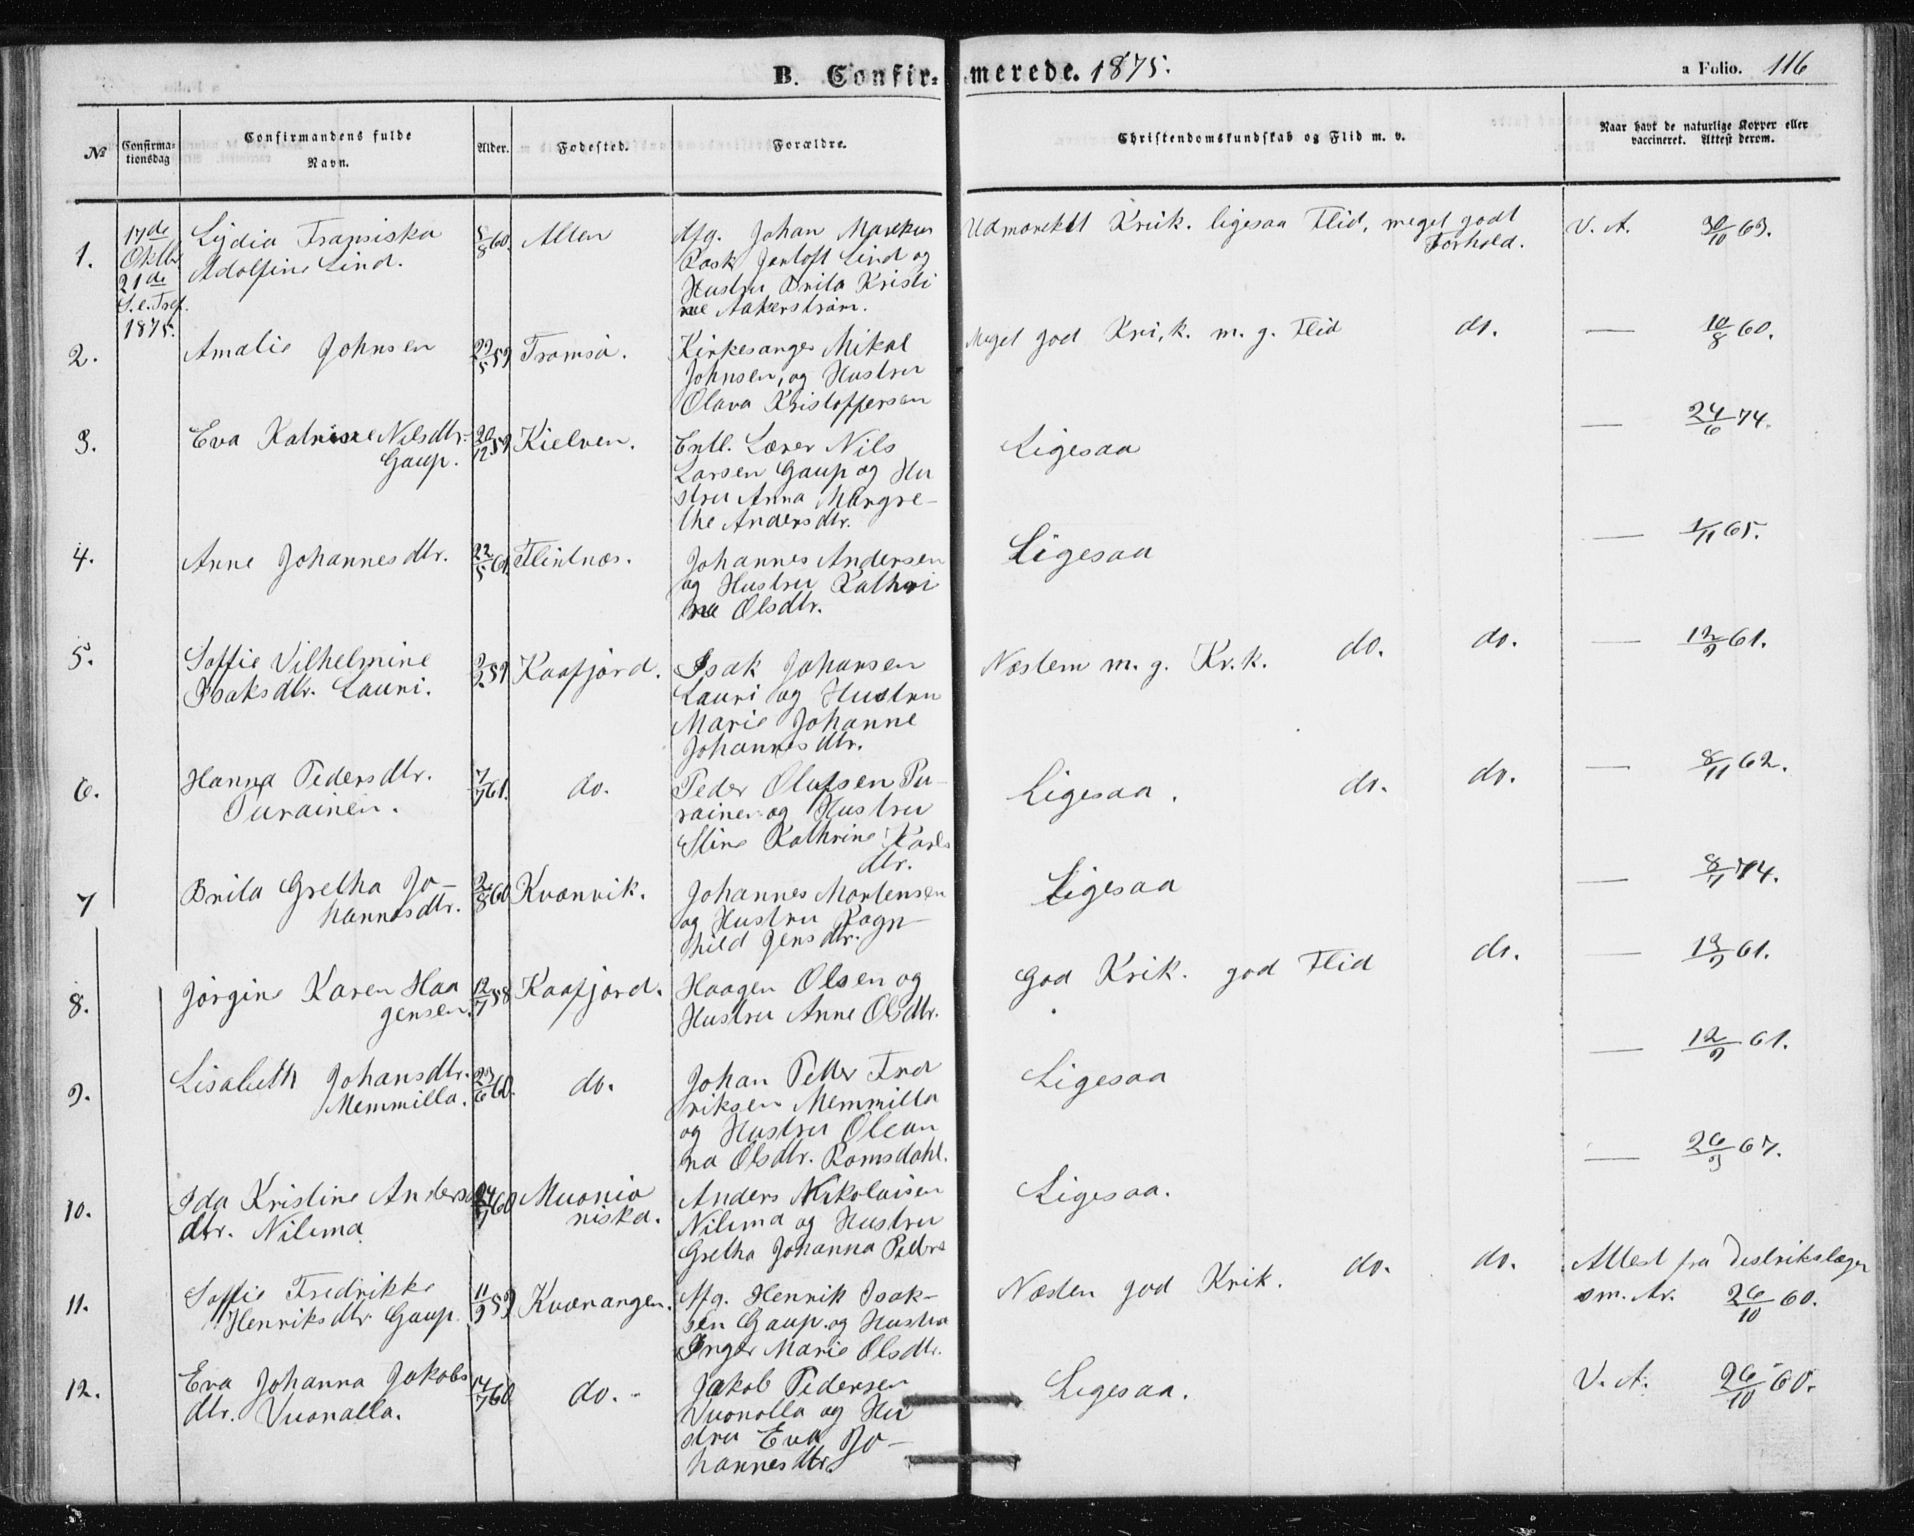 B. Confir- merede. 1875.
a Folio. 116
No
Confirma-
tionsdag
Confirmandens fulde
Navn.
Alder.
Fødested.
Forældre.
Christendomskundskab og Flid m. v.
Naar havt de naturlige Kopper eller
vaccineret. Attest derom.
1.
17de
Oktbr
21de
S. e. Tref.
1875.
Lydia Fransiska
Adolfine Lind.
5/8 60.
Alten
Afg. Johan Marekus
Rask Jentoft Lind og
Hustru Brita Kristi
ne Aakerstrøm.
Udmærket Krik. ligesaa Flid, meget godt
Forhold.
V. A. 30/10 63.
2.
Amalie Johnsen
29/5 59
Tromsø.
Kirkesanger Mikal
Johnsen, og Hustru
Olava Kristoffersen
Meget god Kri.k. m. g. Flid do.
— 10/8 60.
3.
Eva Katrine Nilsdtr.
Gaup.
20/12 59
Kielven.
Entl. Lærer Nils
Larsen Gaup og Hu
stru Anna Margre-
the Andersdtr.
Ligesaa
— 24/6 74.
4.
Anne Johannesdtr.
22/5 61.
Flintnæs.
Johannes Andersen
og Hustru Kathri
na Olsdtr.
Ligesaa
— 1/11 65.
5.
Soffie Vilhelmine
Isaksdtr. Lauri.
2/2 59
Kaafjord.
Isak Johansen
Lauri og Hustru
Marie Johanne
Johannesdtr.
Næsten m. g. Kr.k. do. do.
— 12/9 61.
6.
Hanna Pedersdtr.
Purainen.
7/7 61.
do.
Peder Olufsen Pu-
rainen og Hustru
Stine Kathrine Karls
dtr.
Ligesaa. do. do.
— 8/11 62.
7
Brita Gretha Jo-
hannesdtr.
2/8 60
Kvænvik.
Johannes Mortensen
og Hustru Ragn-
hild Jensdtr.
Ligesaa
— 8/7 74.
8.
Jørgine Karen Haa
gensen.
12/7 58
Kaafjord.
Haagen Olsen og
Hustru Anne Olsdtr.
God Krik. god Flid do.
— 12/9 61.
9.
Lisabeth Johansdtr.
Memmilla.
23/6 60.
do.
Johan Petter Fred
riksen Memmilla
og Hustru Olean
na Olsdtr. Romsdahl.
Ligesaa
— 12/9 61.
10.
Ida Kristine Anders
dtr. Nilima
24/7 60
Muonio
niska.
Anders Nikolaisen
Nilima og Hustru
Gretha Johanna Peders
Ligesaa.
— 26/9 67.
11.
Soffie Fredrikke
Henriksdtr Gaup.
11/9 59
Kvænangen.
Afg. Henrik Isak-
sen Gaup. og Hustru
Inger Marie Olsdtr.
Næsten god Krik. do. do.
Attest fra Distrikslæger
26/10 60.
12.
Eva Johanna Jakobs
dtr. Vuonalla.
14/7 60
do.
Jakob Pedersen
Vuonalla og Hu
stru Eva Jo-
hannesdtr.
Ligesaa.
V. A. 26/10 60.